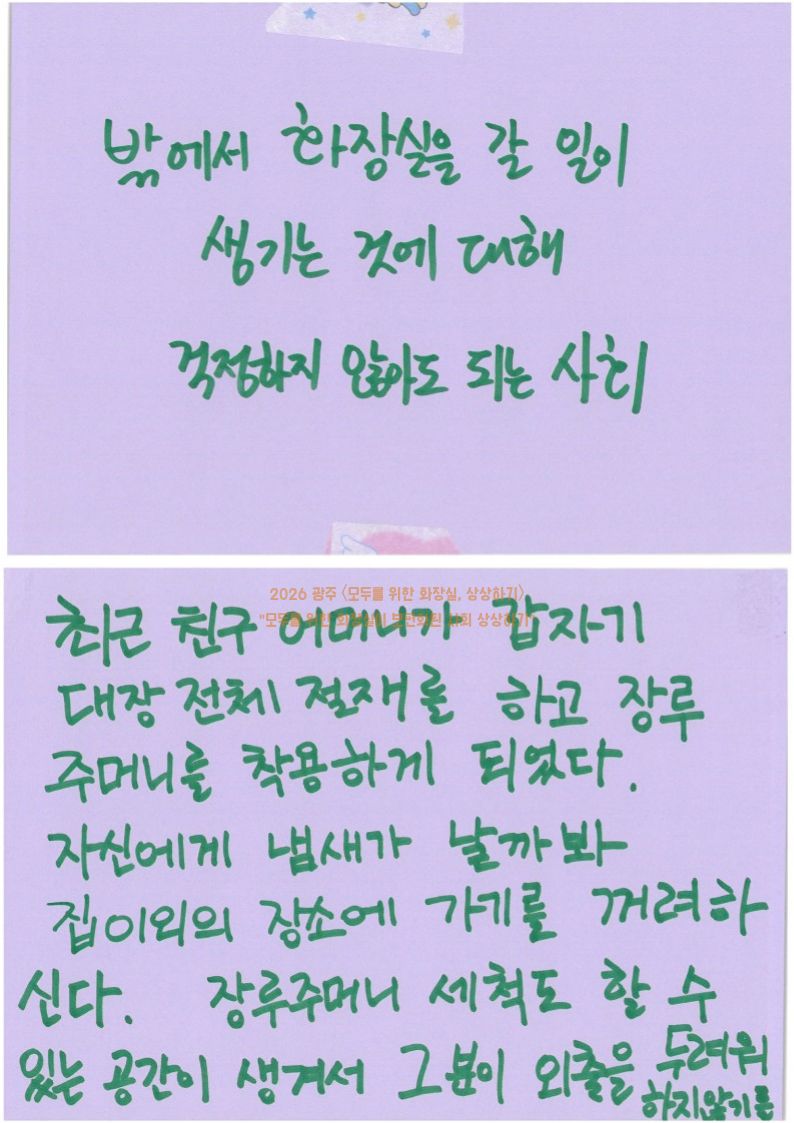 밖에서 화장실을 갈 일이
생기는 것에 대해
걱정하지 않아도 되는 사회
2026 광주 〈모두를 위한 화장실, 상상하기〉
"모두를 위한 화장실이 보편화된 사회 상상하기"
최근 친구 어머니가 갑자기
대장 전체 절재를 하고 장루
주머니를 착용하게 되었다.
자신에게 냄새가 날까봐
집이외의 장소에 가기를 꺼려하
신다. 장루주머니 세척도 할 수
있는 공간이 생겨서 그분이 외출을 두려워
하지않기를